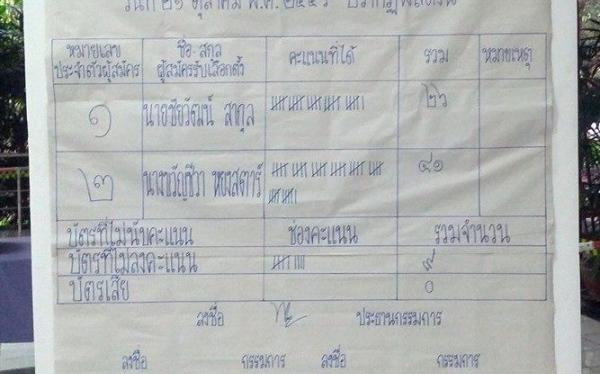 วันที่ ๒๑ ตุลาคม พ.ศ. ๒๕๕๖ ปรากฏผลดังนี้
หมายเลข ชื่อ-สกุล คะแนนที่ได้ รวม หมายเหตุ
ประจำตัวผู้สมัคร ผู้สมัครรับเลือกตั้ง
๑ นายชัยวัฒน์ สากุล ๒๖
๒ นางขวัญชีวา หงษ์สตาร์ ๔๑
บัตรที่ไม่นับคะแนน ช่องคะแนน รวมจำนวน
บัตรที่ไม่ลงคะแนน ๙
บัตรเสีย ๐
ลงชื่อ ประธานกรรมการ
ลงชื่อ กรรมการ ลงชื่อ กรรมการ